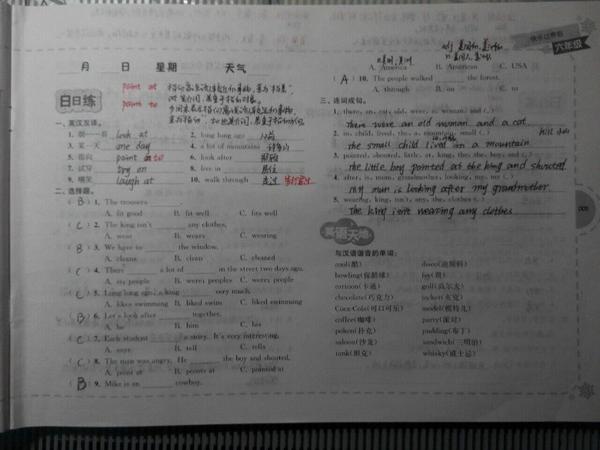 六年级
月 日 星期 天气
point at
point to
日日练
一、英汉互译。
1. 朝…看 look at
2. long long ago
3. 某一天 one day
4. a lot of mountains
5. 指向 point to
6. look after
7. 试穿 try on
8. live in 居住
9. 嘲笑 laugh at
10. walk through 走过
二、选择题。
(B) 1. The trousers
A. fit good B. fit well C. fits well
(C) 2. The king isn't any clothes.
A. wear B. wears C. wearing
(B) 3. We have to the window.
A. cleans B. clean C. cleaned
(C) 4. There a lot of in the street two days ago.
A. is; people B. were; peoples C. were; people
(C) 5. Long long ago, a king very much.
A. likes swimming B. liked swim C. liked swimming
(B) 6. Let's look after together.
A. he B. him C. his
(C) 7. Each student a story. It's very interesting.
A. says B. tell C. tells
(C) 8. The man was angry. He the boy and shouted.
A. point at B. points at C. pointed at
(B) 9. Mike is an cowboy.
A. America B. American C. USA
(A) 10. The people walked the forest.
A. through B. on C. to
三、连词成句。
1. there, an, cat, old, were, a, woman, and (.)
There were an old woman and a cat.
2. in, child, lived, the, a, mountain, small (.)
the small child lived in a mountain
3. pointed, shouted, little, at, king, the, the, boy, and (.)
the little boy pointed at the king and shouted.
4. after, is, mum, grandmother, looking, my, my (.)
my mum is looking after my grandmother.
5. wearing, king, isn't, any, the, clothes (.)
The king isn't wearing any clothes.
英语天地
与汉语谐音的单词：
cool(酷) disco(迪斯科)
bowling(保龄球)
cartoon(卡通) golf(高尔夫)
chocolate(巧克力) jacket(夹克)
Coca-Cola(可口可乐) model(模特)
coffee(咖啡) party(派对)
poker(扑克) pudding(布丁)
saloon(沙龙) sandwich(三明治)
tank(坦克) whisky(威士忌)